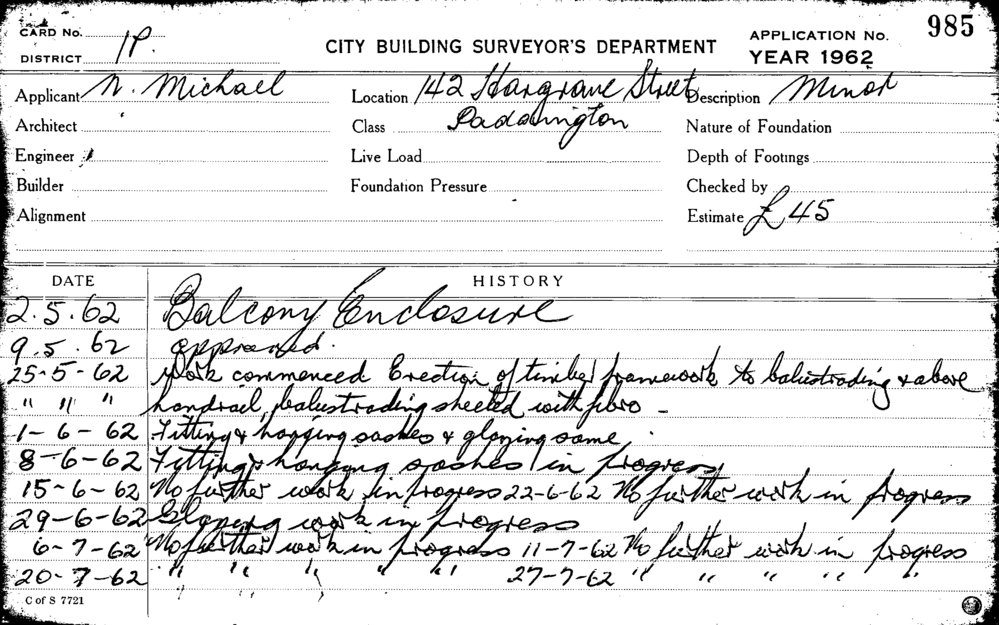 CARD No.
DISTRICT 1P.
CITY BUILDING SURVEYOR'S DEPARTMENT
APPLICATION No. 985
YEAR 1962
Applicant N. Michael
Location 142 Hargrave Street
Description Minor
Architect
Class Paddington
Nature of Foundation
Engineer
Live Load
Depth of Footings
Builder
Foundation Pressure
Checked by
Alignment
Estimate £45
DATE HISTORY
2.5.62 Balcony Enclosure
9.5.62 approved.
25-5-62 Work commenced Erection of timber framework to balustrading & above
" " " handrail, balustrading sheeted with fibro -
1-6-62 Fitting & hanging sashes & glazing same.
8-6-62 Fitting & hanging sashes in progress
15-6-62 No further work in progress 22-6-62 No further work in progress
29-6-62 Glazing work in progress
6-7-62 No further work in progress 11-7-62 No further work in progress
20-7-62 " " " " " 27-7-62 " " " " "
C of S 7721